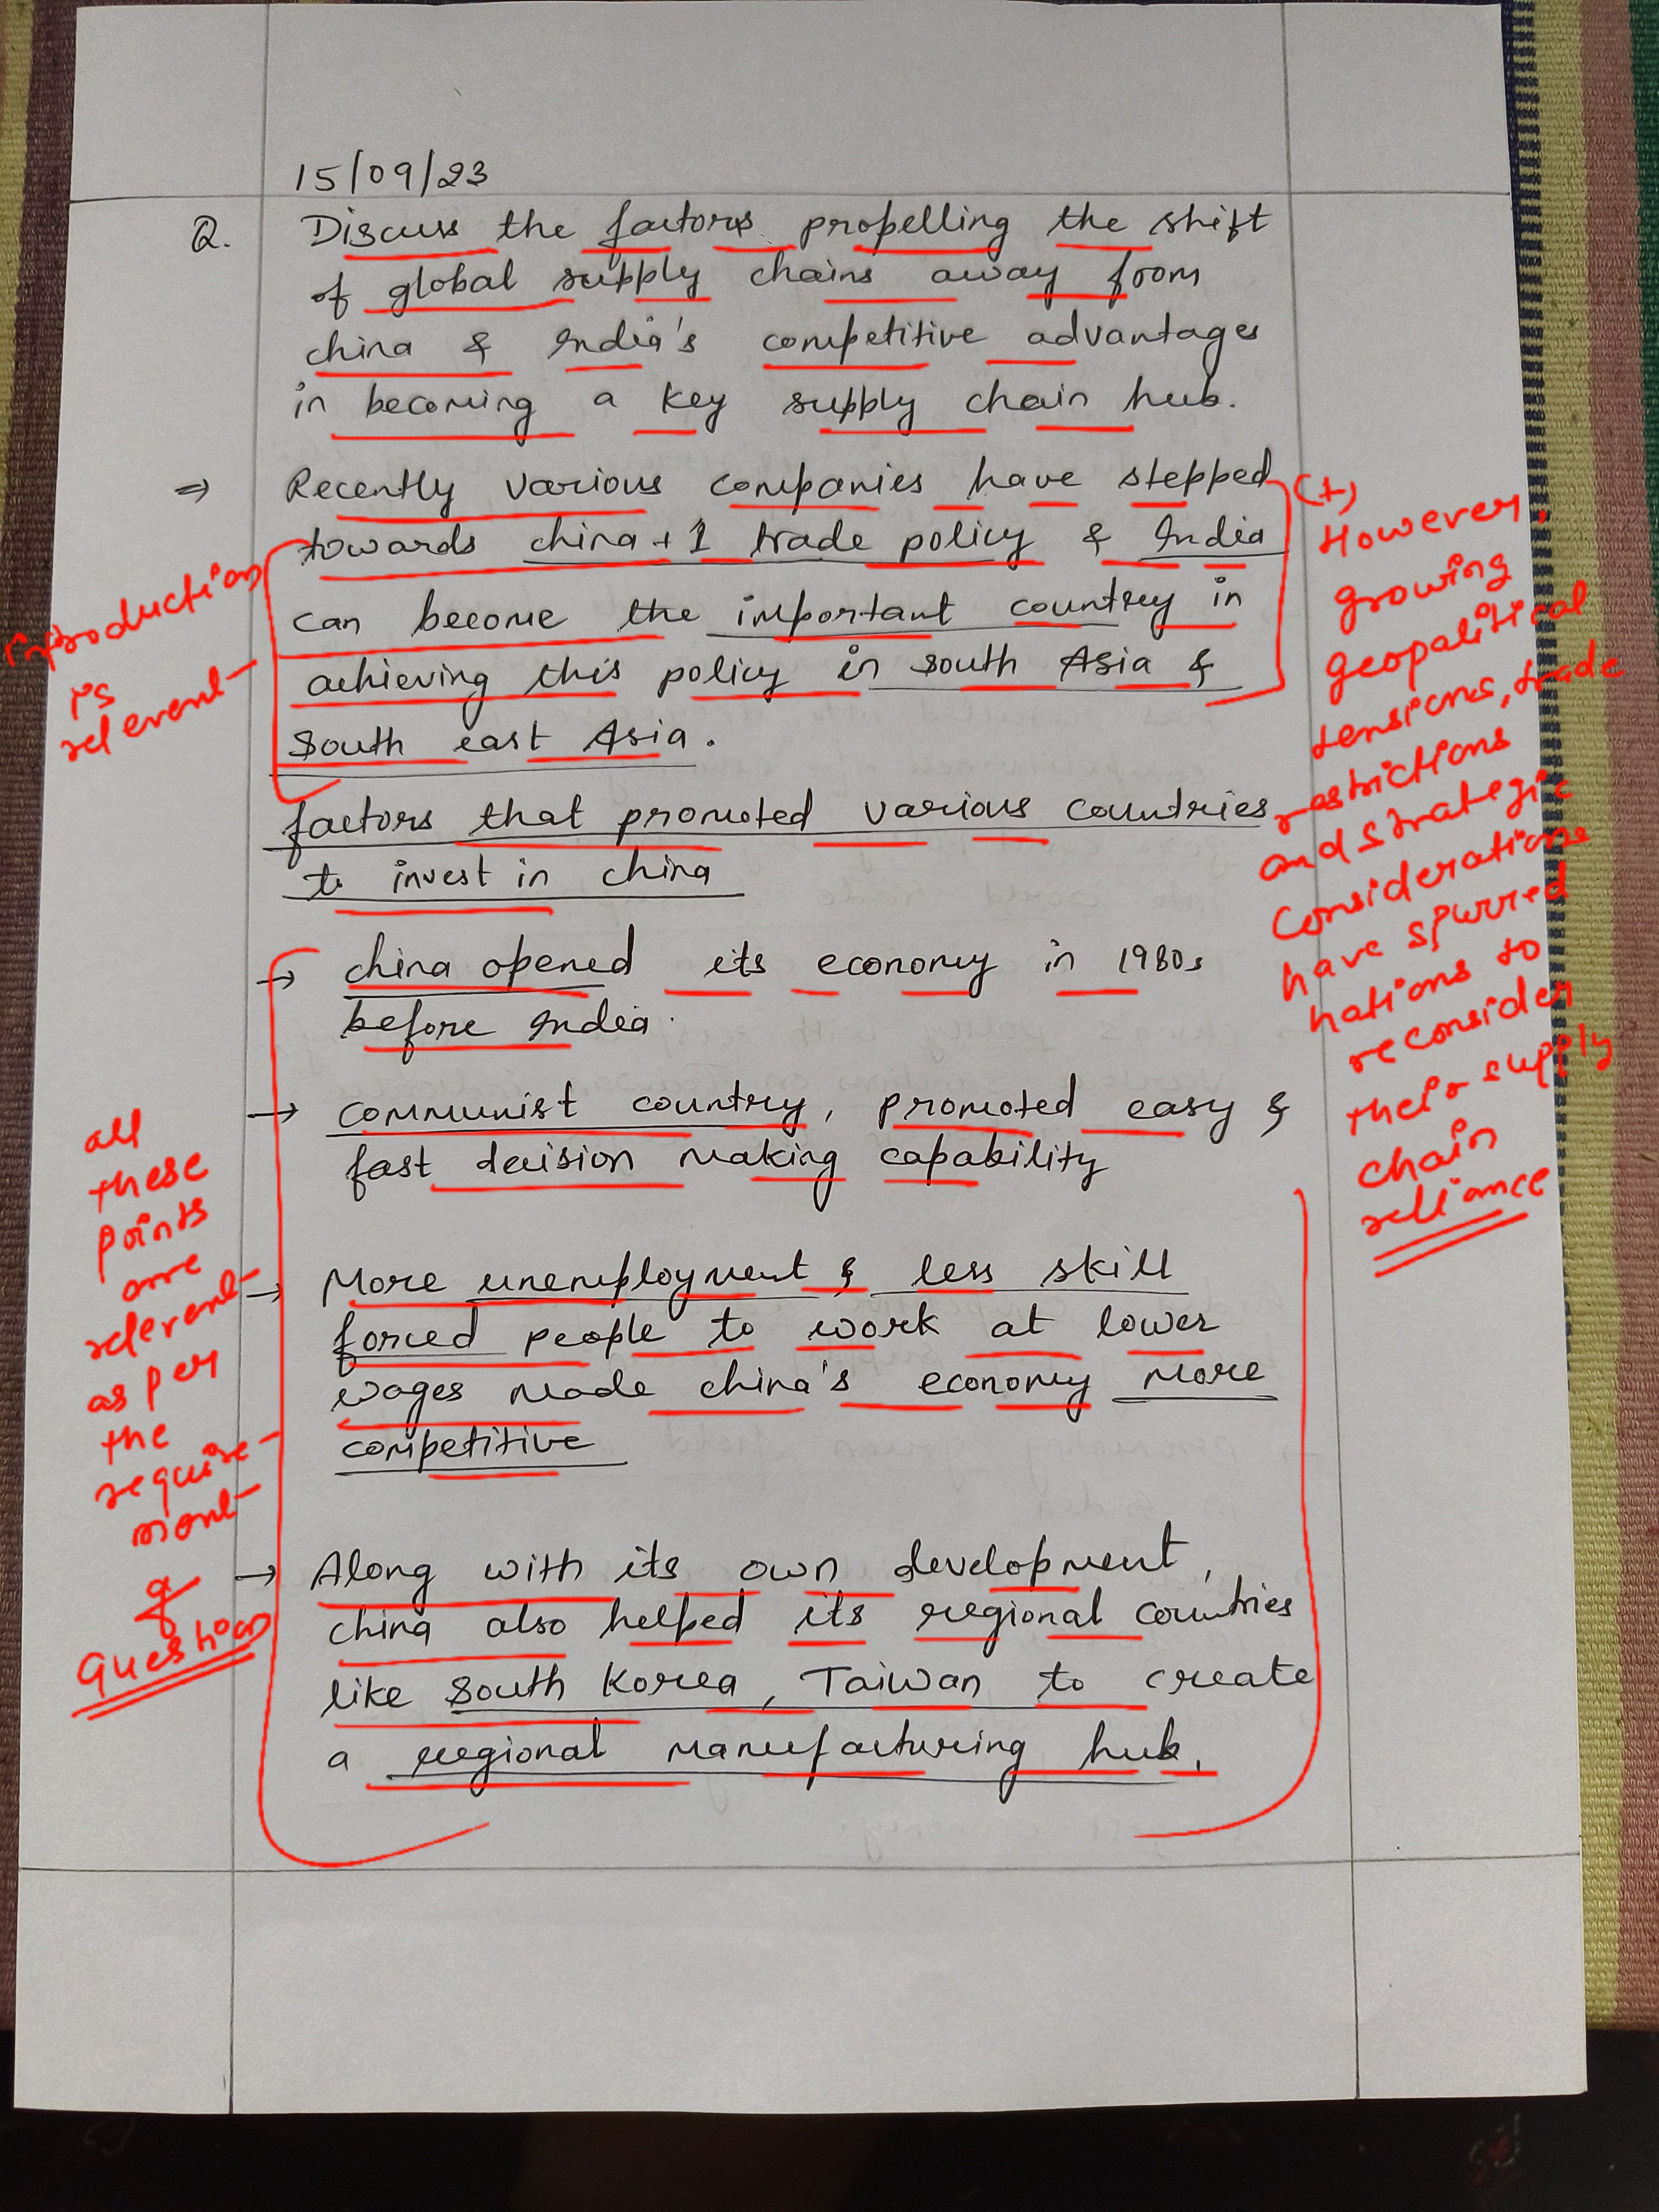 15/09/23
Q. Discuss the factors propelling the shift
of global supply chains away from
china & India's competitive advantages
in becoming a key supply chain hub.
⇒ Recently various companies have stepped
towards china+1 trade policy & India
can become the important country in
achieving this policy in south Asia &
South east Asia.
introduction
is
relevent
(+)
However,
growing
geopalitical
tensions, trade
restrictions
and strategic
Considerations
have spurred
nations to
reconsider
their supply
chain
reliance
factors that promoted various countries
to invest in china
→ china opened its economy in 1980s
before India.
→ communist country, promoted easy &
fast decision making capability
→ More unemployment & less skill
forced people to work at lower
wages made china's economy more
competitive
→ Along with its own development,
china also helped its regional countries
like South Korea, Taiwan to create
a regional manufacturing hub.
all
these
points
are
relevent
as per
the
require-
ment
of
Question